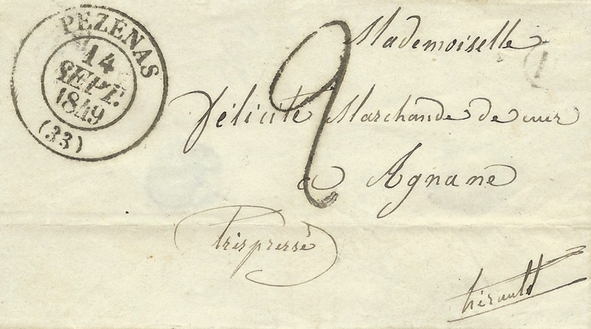 PEZENAS
14
SEPT.
1849
(33)
2
Mademoiselle
1
Félicité Marchande de cuir
a Agnane
très pressé
hérault